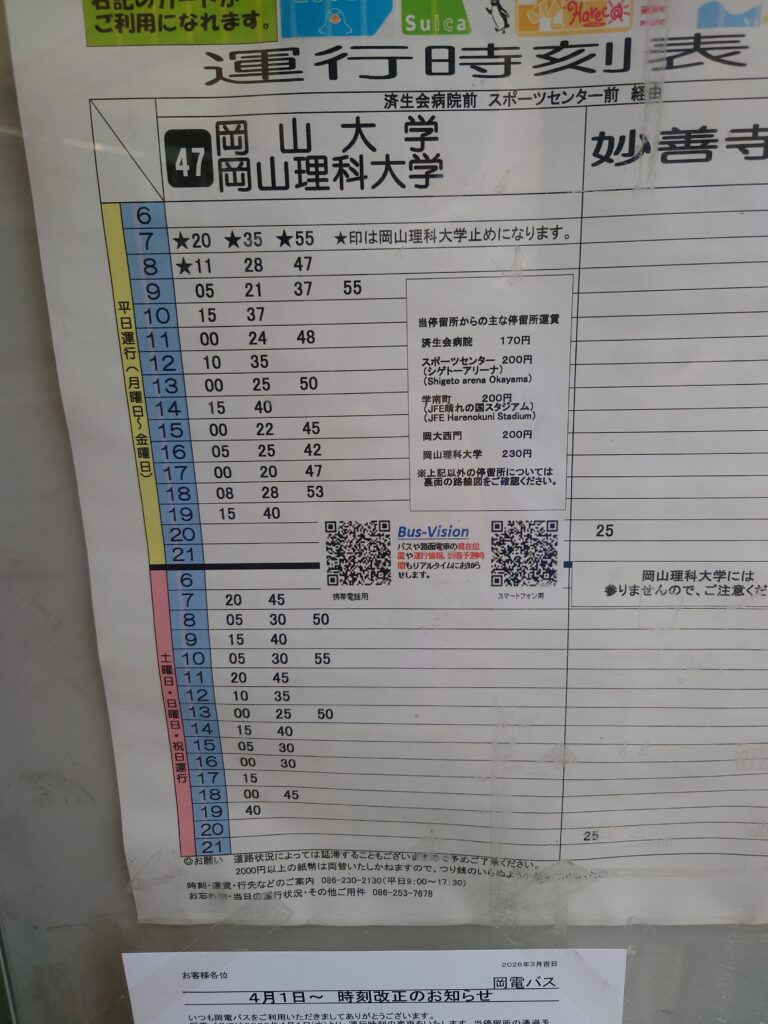 右記のカードが
ご利用になれます。
Suica
Hareca
運行時刻表
済生会病院前 スポーツセンター前 経由
47
岡山大学
岡山理科大学
妙善寺
平日運行(月曜日〜金曜日)
6
7 ★20 ★35 ★55 ★印は岡山理科大学止めになります。
8 ★11 28 47
9 05 21 37 55
10 15 37
11 00 24 48
12 10 35
13 00 25 50
14 15 40
15 00 22 45
16 05 25 42
17 00 20 47
18 08 28 53
19 15 40
20 25
21
当停留所からの主な停留所運賃
済生会病院 170円
スポーツセンター 200円
(シゲトーアリーナ)
(Shigeto arena Okayama)
学南町 200円
(JFE晴れの国スタジアム)
(JFE Harenokuni Stadium)
岡大西門 200円
岡山理科大学 230円
※上記以外の停留所については
裏面の路線図をご確認ください。
Bus-Vision
バスや路面電車の現在位
置や運行情報、到着予測時
間もリアルタイムにお知ら
せします。
携帯電話用
スマートフォン用
岡山理科大学には
参りませんので、ご注意くだ
土曜日・日曜日・祝日運行
6
7 20 45
8 05 30 50
9 15 40
10 05 30 55
11 20 45
12 10 35
13 00 25 50
14 15 40
15 05 30
16 00 30
17 15
18 00 45
19 40
20 25
21
◎お願い 道路状況によっては延滞することもございますので予めご了承ください。
2000円以上の紙幣は両替いたしかねますので、つり銭のいらぬよう
時刻・運賃・行先などのご案内 086-230-2130(平日9:00〜17:30)
お忘れ物・当日の運行状況・その他ご用件 086-253-7678
2026年3月吉日
お客様各位
岡電バス
4月1日〜 時刻改正のお知らせ
いつも岡電バスをご利用いただきましてありがとうございます。